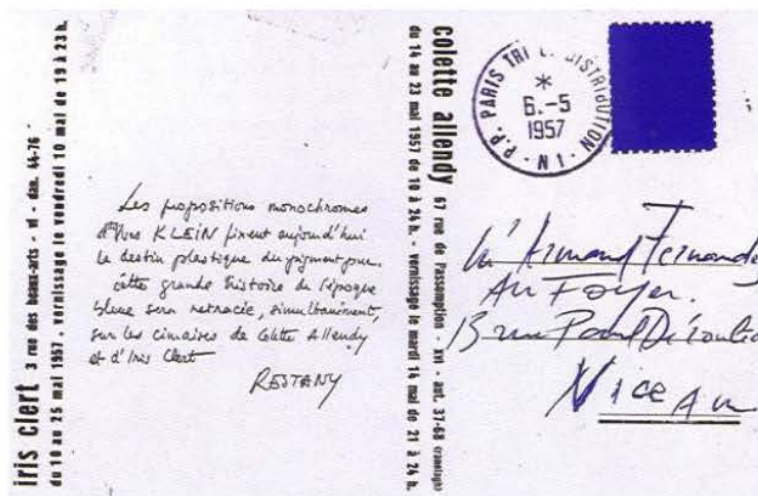 iris clert 3 rue des beaux-arts - vi - dan. 44-76
du 10 au 25 mai 1957 . vernissage le vendredi 10 mai de 19 à 23 h.
Les propositions monochromes
d'Yves KLEIN fixent aujourd'hui
le destin plastique du pigment pur.
Cette grande histoire de l'époque
bleue sera retracée, simultanément,
sur les cimaises de Colette Allendy
et d'Iris Clert
RESTANY
colette allendy 67 rue de l'assomption - xvi - aut. 37-68 (ranelagh)
du 14 au 23 mai 1957 de 10 à 24 h. - vernissage le mardi 14 mai de 21 à 24 h.
P.P. PARIS TRI DISTRIBUTION - N 1 -
*
6.-5
1957
Armand Fernandez
Au Foyer.
13 rue Paul
Nice